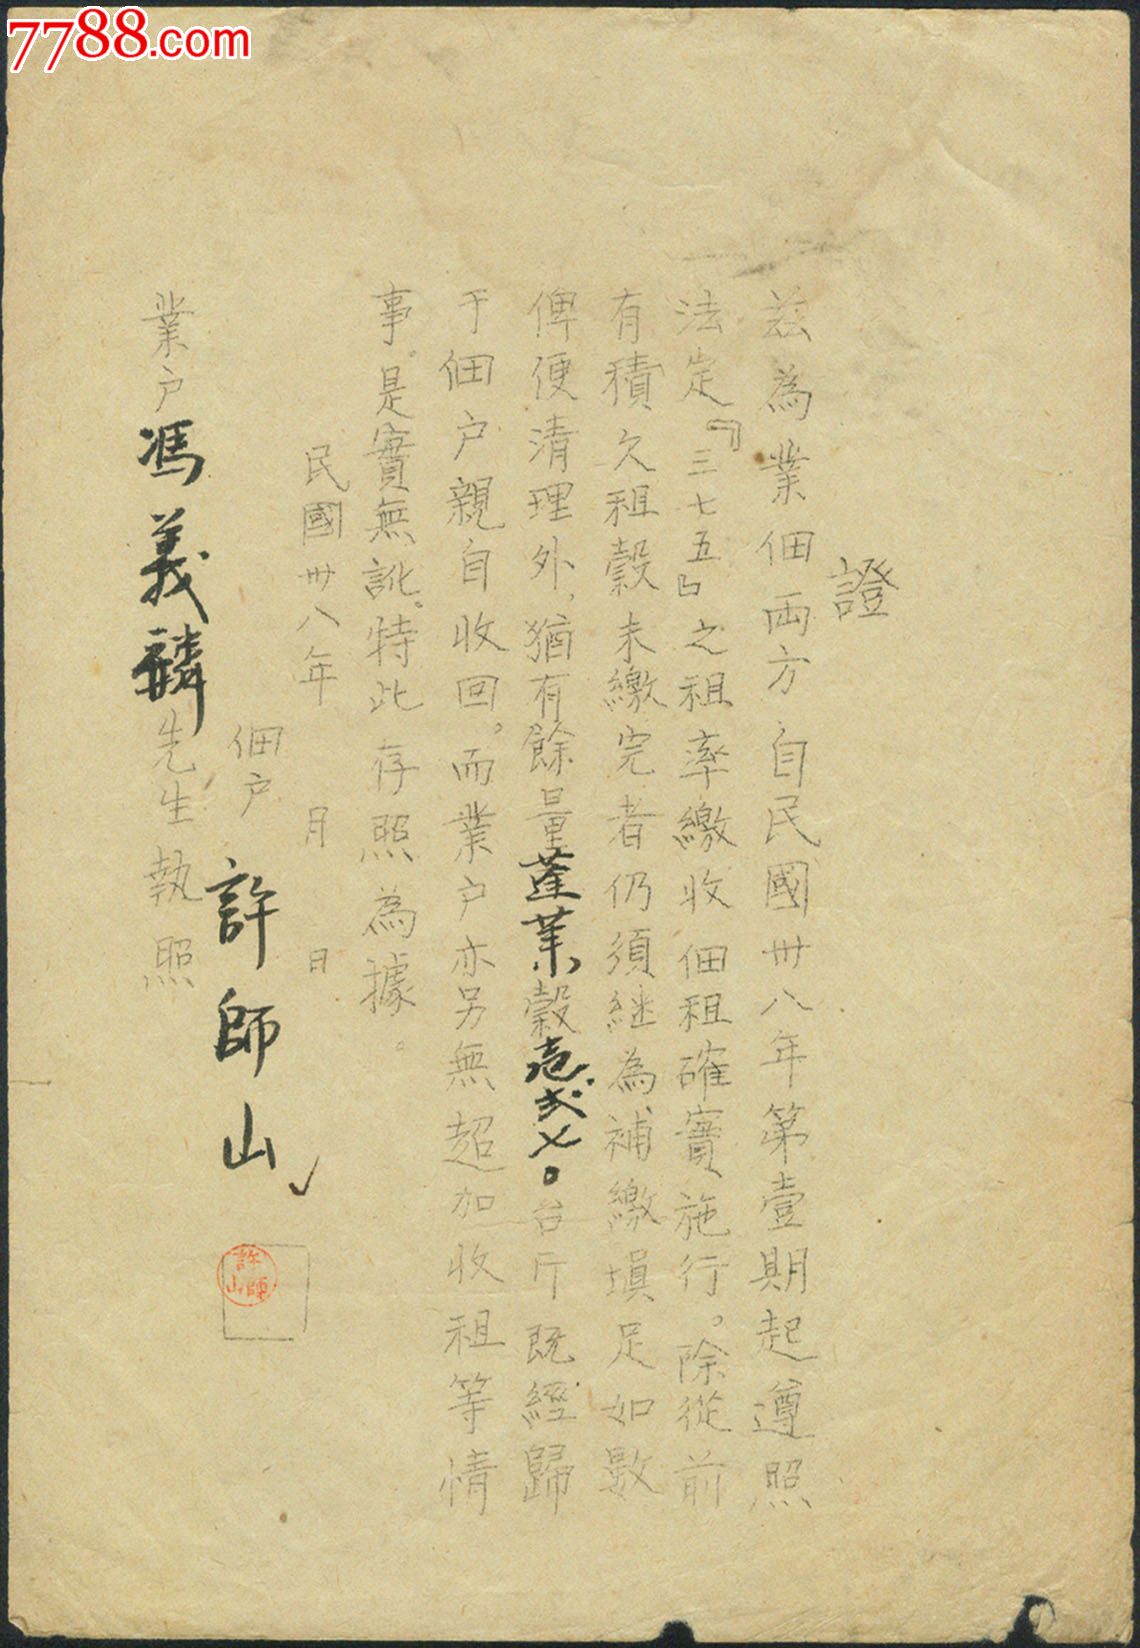 7788.com
證
兹為業佃両方自民國卅八年第壹期起遵照
法定『三七五』之租率繳收佃租確實施行。除從前
有積欠租穀未繳完者仍須継為補繳填足如數
俾便清理外，猶有餘量蓬萊穀壱弍〤〇台斤既經歸
于佃户親自收回。而業户亦另無超加收租等情
事。是實無訛。特此存照為據。
民國卅八年 月 日
佃户 許師山
許師山
業户馮義麟先生執照